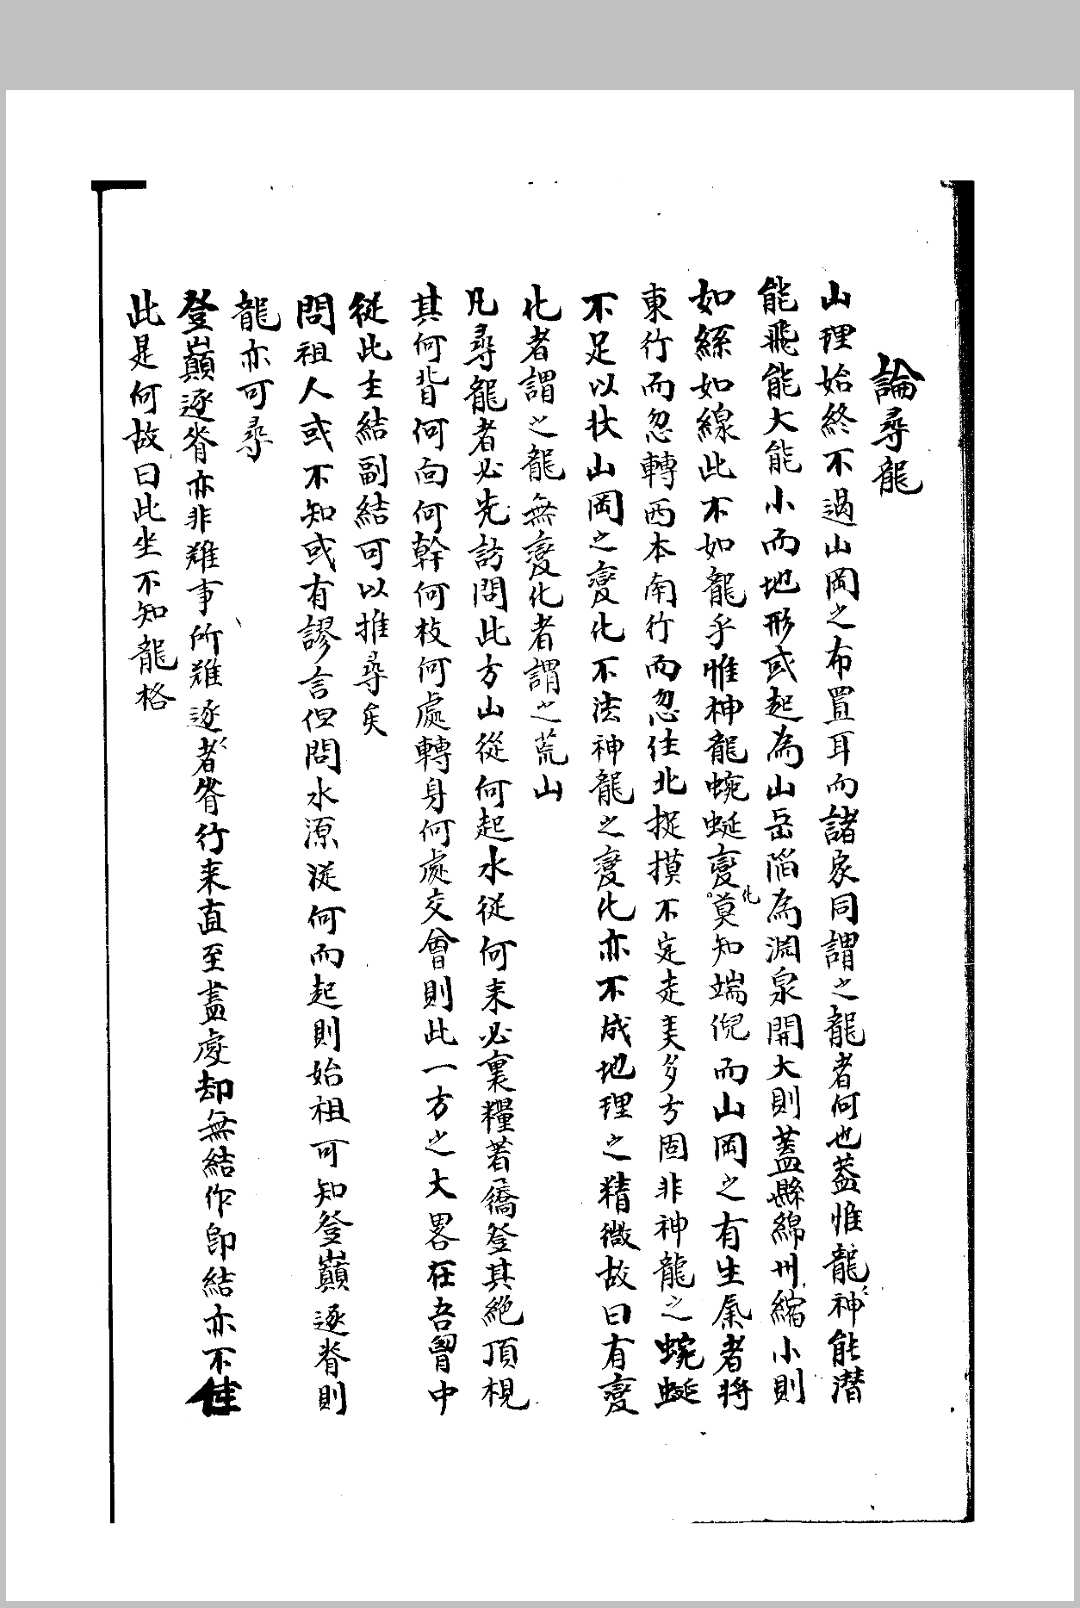 論尋龍
山理始終不過山岡之布置耳而諸家同謂之龍者何也蓋惟龍神能潜
能飛能大能小而地形或起為山岳陷為淵泉開大則蓋縣綿州縮小則
如絲如線此不如龍乎惟神龍蜿蜒變化莫知端倪而山岡之有生氣者將
東行而忽轉西本南行而忽住北捉摸不定走美多方固非神龍之蜿蜒
不足以状山岡之變化不法神龍之變化亦不成地理之精微故曰有變
化者謂之龍無變化者謂之荒山
凡尋龍者必先訪問此方山從何起水從何来必裏糧著屩登其絶頂視
其何背何向何幹何枝何處轉身何處交會則此一方之大畧在吾胷中
從此主結副結可以推尋矣
問祖人或不知或有謬言但問水源従何而起則始祖可知登巔逐脊則
龍亦可尋
登巔逐脊亦非難事所難逐者脊行来直至盡處却無結作即結亦不佳
此是何故曰此坐不知龍格